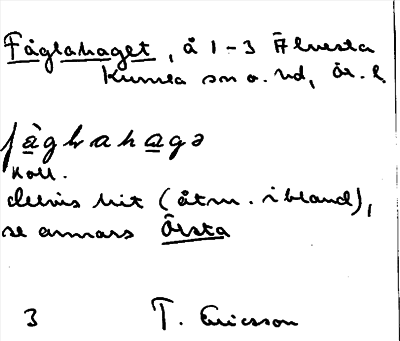 Fåglahaget, å 1-3 Älvesta
Kumla sn o. hd, Ör. l.
fåglahagə
Koll.
delvis hit (åtm. ibland),
se annars Örsta
3 T. Ericsson